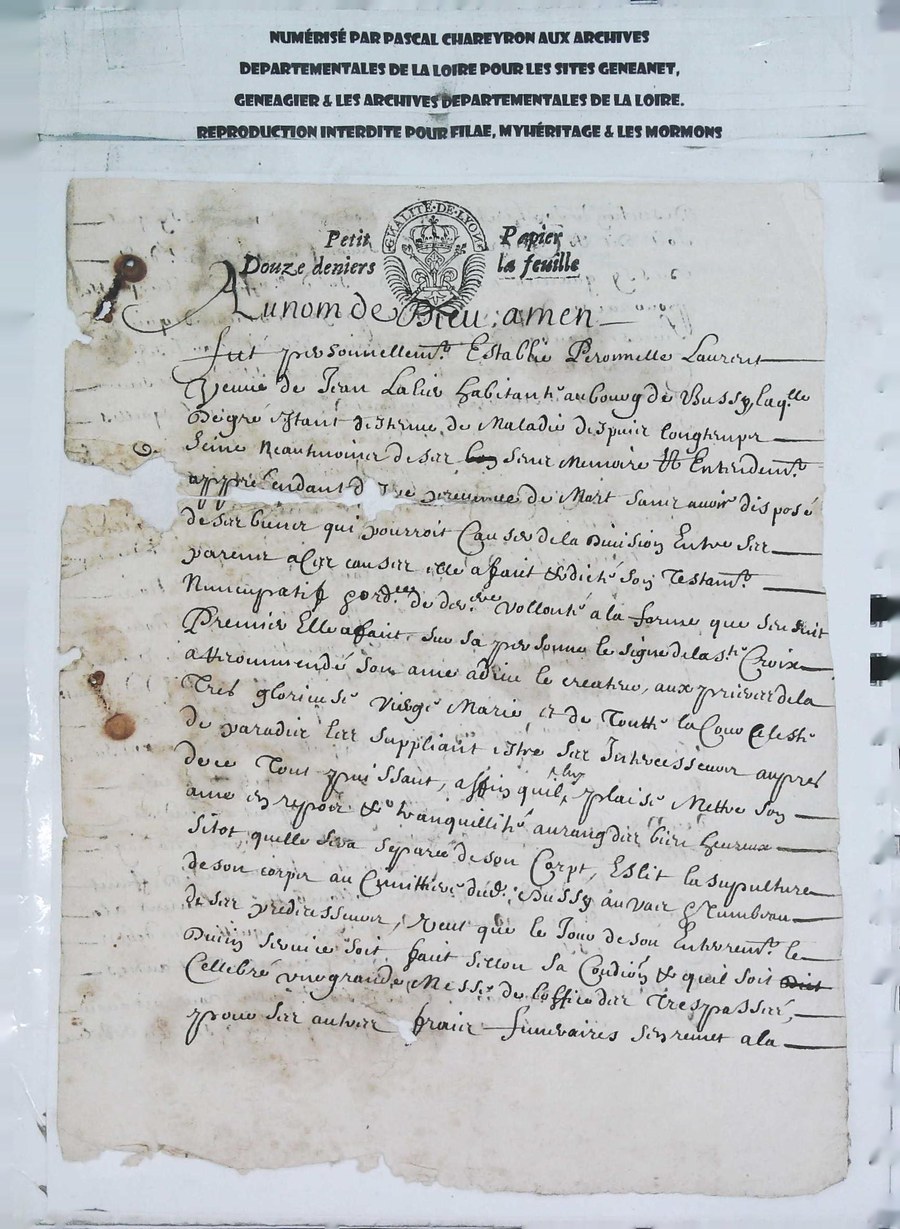 NUMÉRISÉ PAR PASCAL CHAREYRON AUX ARCHIVES
DEPARTEMENTALES DE LA LOIRE POUR LES SITES GENEANET,
GENEAGIER & LES ARCHIVES DEPARTEMENTALES DE LA LOIRE.
REPRODUCTION INTERDITE POUR FILAE, MYHÉRITAGE & LES MORMONS
Petit Papier
Douze deniers la feuille
GNALITE·DE·LYON
Au nom de Dieu; amen
fut personnellemt. Establie Peronnelle Laurent
Veuve de Jean habitante. au bourg de Bussy, laqlle
Degré estant de Maladie despuis longtemps
Seine neantmoins de ses sens Memoire & Entendemt.
apprehendant de Mort sans avoir disposé
de ses biens qui pourroit Causer de la Division Entre ses
parens a Ces causes elle a faict & dicté son Testamt.
Nuncupatif & de volonté a la forme que sen suit
Premier Elle a fait, sur sa personne le signe de la ste. Croix
a Recommendé son ame a dieu le createur, aux prieres de la
Tres glorieuse vierge Marie, et de Toutte la Cour Celeste
de paradis les suppliant estre ses Intercesseurs aupres
de ce Tout puissant, affin quil luy plaise Mettre son
ame en repos & tranquillité au rang des bien heureux
sitot quelle sera separée de son Corps, Eslit la supulture
de son corps au Cimittiere dud. Bussy au vas & Tumbeau
de ses predecesseurs, veut que le Jour de son Enterremt. le
Divin service soit faict sellon sa Condition & quil soit dict
Cellebré une grande Messe de loffice des Trespassés,
pour ses autres frais funeraires sen remet a la